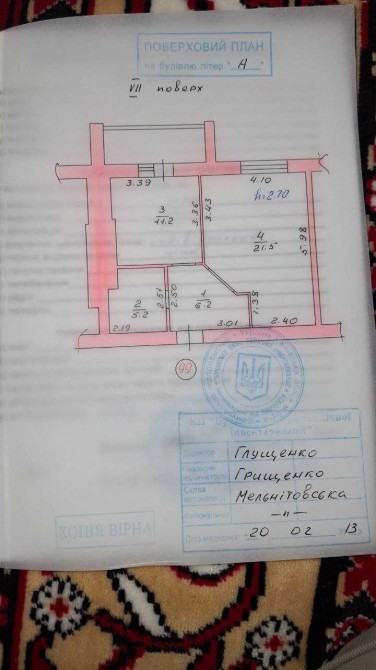 ПОВЕРХОВИЙ ПЛАН
на будівлю літер "А"
VII поверх
3.39
4.10
h=2.70
3
11.2
3.36
3.43
4
21.5
5.98
2
5.2
2.51
2.50
1
6.2
1.38
2.19
3.01
2.40
99
Директор
Глущенко
Грищенко
Мельнітовська
-п-
20 02 13
КОПІЯ ВІРНА